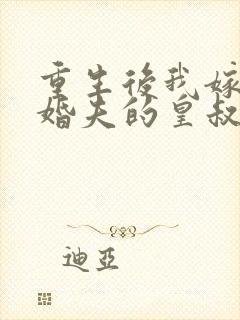 重生後我嫁
婚夫的皇叔
迪亞